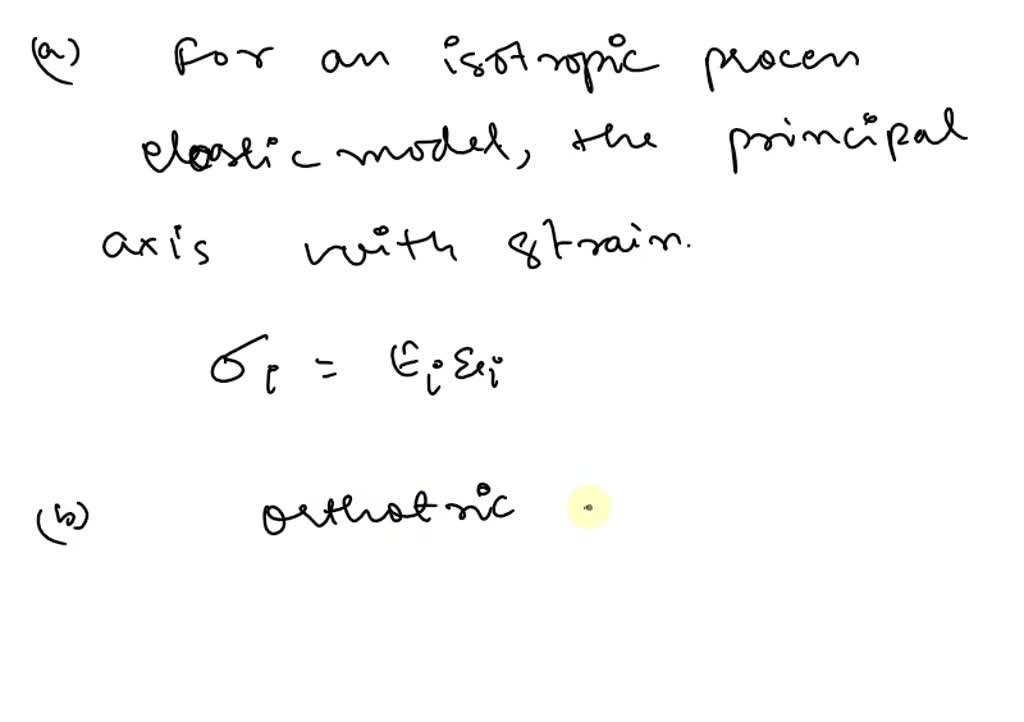 (a) For an isotropic procen
eloastic model, the principal
axis with strain.
σi = Ei εi
(b) orthotric